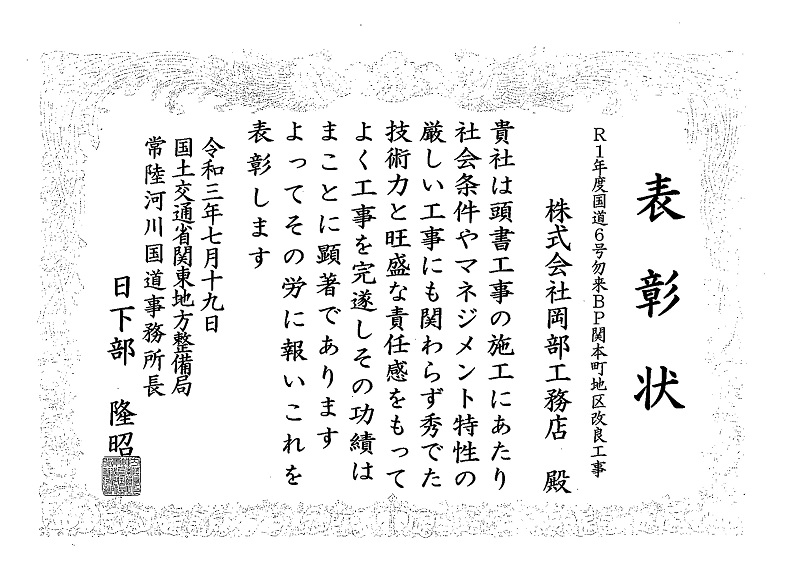 表彰状
R1年度国道6号勿来BP関本町地区改良工事
株式会社岡部工務店 殿
貴社は頭書工事の施工にあたり
社会条件やマネジメント特性の
厳しい工事にも関わらず秀でた
技術力と旺盛な責任感をもって
よく工事を完遂しその功績は
まことに顕著であります
よってその労に報いこれを
表彰します
令和三年七月十九日
国土交通省関東地方整備局
常陸河川国道事務所長
日下部 隆昭